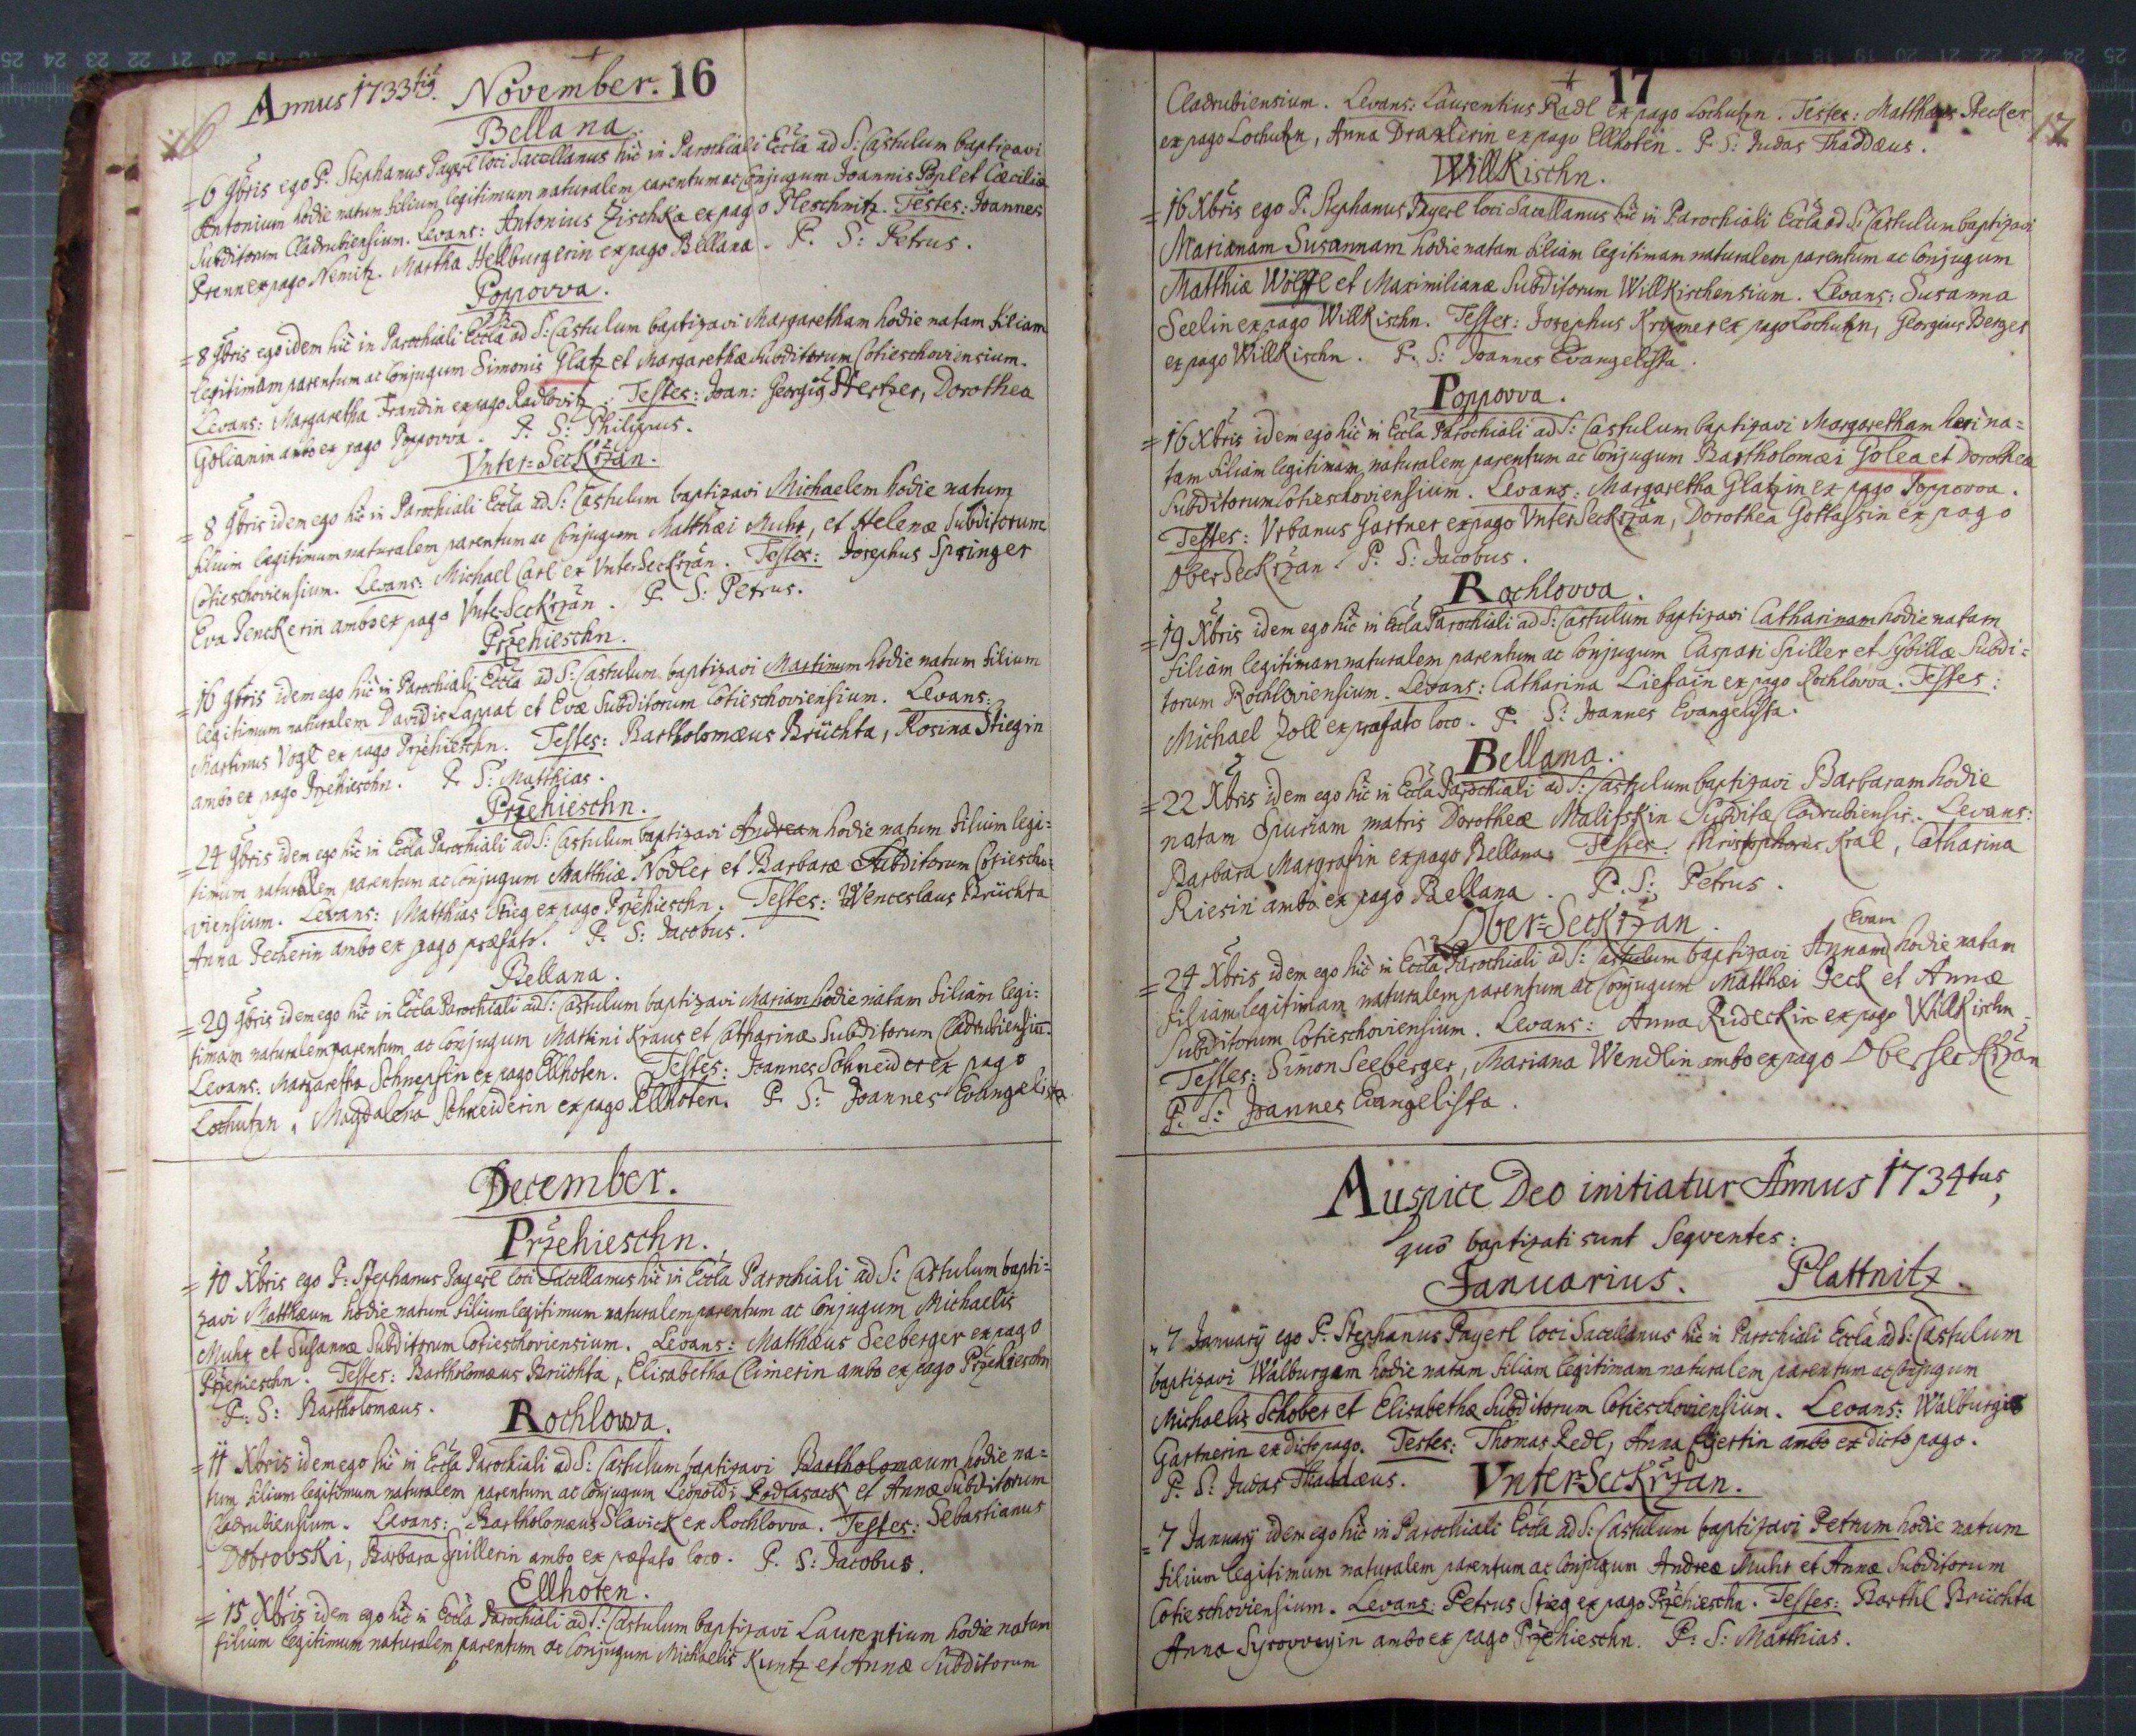 Annus 1733tiꝰ. November. 16
16
Bellana.
= 6 9bris ego P. Stephanus Payerl loci Sacellanus hic in Parochiali Eccla ad S: Castulum baptizavi
Antonium hodie natum filium legitimum naturalem parentum ac Conjugum Joannis Popl et Cæciliæ
Subditorum Cladrubiensium. Levans: Antonius Zischka ex pago Pleschnitz. Testes: Joannes
Prenn ex pago Nemitz. Martha Hellburgerin ex pago Bellana. P. S: Petrus.
Poppovva.
= 8 9bris ego idem hic in Parochiali Eccla ad S: Castulum baptizavi Margaretham hodie natam filiam
legitimam parentum ac Conjugum Simonis Glatz et Margarethæ Subditorum Cotieschoviensium.
Levans: Margaretha Frandin ex pago Radlovitz. Testes: Joan: Georgiꝰ Stertzer, Dorothea
Golianin ambo ex pago Poppovva. P. S: Philippus.
Vnter=Seckržan.
= 8 9bris idem ego hic in Parochiali Eccla ad S: Castulum baptizavi Michaelem hodie natum
filium legitimum naturalem parentum ac Conjugum Matthæi Muhr, et Helenæ Subditorum
Cotieschoviensium. Levans: Michael Carl ex VnterSeckržan. Testes: Josephus Springer
Eva Penckerin ambo ex pago Vnter-Seckržan. P. S: Petrus.
Pržehieschn.
= 16 9bris idem ego hic in Parochiali Eccla ad S: Castulum baptizavi Martinum hodie natum filium
legitimum naturalem Davidis Lappat et Evæ Subditorum Cotieschoviensium. Levans:
Martinus Vogl ex pago Pržehieschn. Testes: Bartholomæus Brüchta, Rosina Stiegin
ambo ex pago Pržehieschn. P. S: Matthias.
Pržehieschn.
= 24 9bris idem ego hic in Eccla Parochiali ad S: Castulum baptizavi Andream hodie natum filium legi=
timum naturalem parentum ac Conjugum Matthiæ Nodler et Barbaræ Subditorum Cotiescho=
viensium. Levans: Matthias Stieg ex pago Pržehieschn. Testes: Wenceslaus Brüchta
Anna Pecherin ambo ex pago præfato. P. S: Jacobus.
Bellana.
= 29 9bris idem ego hic in Eccla Parochiali ad S: Castulum baptizavi Mariam hodie natam filiam legi=
timam naturalem parentum ac Conjugum Martini Kraus et Catharinæ Subditorum Cladrubiensiu.
Levans: Margaretha Schnepfin ex pago Ellhoten. Testes: Joannes Schneider ex pago
Lochutzn, Magdalena Schneiderin ex pago Ellhoten. P. S: Joannes Evangelista
December.
Pržehieschn.
= 10 Xbris ego P: Stephanus Payerl loci Sacellanus hic in Eccla Parochiali ad S: Castulum bapti=
zavi Matthæum hodie natum filium legitimum naturalem parentum ac Conjugum Michaelis
Muhr et Susannæ Subditorum Cotieschoviensium. Levans: Matthæus Seeberger ex pago
Pržehieschn. Testes: Bartholomæus Brüchta, Elisabetha Climetin ambo ex pago Pržehieschn
P: S: Bartholomæus.
Rochlovva.
= 11 Xbris idem ego hic in Eccla Parochiali ad S: Castulum baptizavi Bartholomæum hodie na=
tum filium legitimum naturalem parentum ac Conjugum Leopoldi Podlasack et Annæ Subditorum
Cladrubiensium. Levans: Bartholomæus Slavick ex Rochlovva. Testes: Sebastianus
Dobrovski, Barbara Spillerin ambo ex præfato loco. P. S: Jacobus.
Ellhoten.
= 15 Xbris idem ego hic in Eccla Parochiali ad S: Castulum baptizavi Laurentium hodie natum
filium legitimum naturalem parentum ac Conjugum Michaelis Kuntz et Annæ Subditorum
17
17
Cladrubiensium. Levans: Laurentius Radl ex pago Lochutzn. Testes: Matthæus Pecker
ex pago Lochutzn, Anna Draxlerin ex pago Ellhoten. P. S: Judas Thaddæus.
WillKischn.
= 16 Xbris ego P. Stephanus Payerl loci Sacellanus hic in Parochiali Eccla ad S: Castulum baptizavi
Marianam Susannam hodie natam filiam legitimam naturalem parentum ac Conjugum
Matthiæ Wolffl et Maximilianæ Subditorum WillKischensium. Levans: Susanna
Seelin ex pago WillKischn. Testes: Josephus Krammer ex pago Lochutzn, Georgius Berger
ex pago WillKischn. P. S: Joannes Evangelista.
Poppovva.
= 16 Xbris idem ego hic in Eccla Parochiali ad S: Castulum baptizavi Margaretham heri na=
tam filiam legitimam naturalem parentum ac Conjugum Bartholomæi Golea et Dorotheæ
Subditorum Cotieschoviensium. Levans: Margaretha Glatzin ex pago Poppovva.
Testes: Vrbanus Gartner ex pago VnterSeckržan, Dorothea Gottassin ex pago
OberSeckržan. P. S: Jacobus.
Rochlovva.
= 19 Xbris idem ego hic in Eccla Parochiali ad S: Castulum baptizavi Catharinam hodie natam
filiam legitimam naturalem parentum ac Conjugum Caspari Spiller et Sybillæ Subdi=
torum Rochloviensium. Levans: Catharina Liefain ex pago Rochlovva. Testes:
Michael Zoll ex præfato loco. P. S: Joannes Evangelista.
Bellana.
= 22 Xbris idem ego hic in Eccla Parochiali ad S: Castulum baptizavi Barbaram hodie
natam Spuriam matris Dorotheæ Malifskin Subditæ Cladrubiensis. Levans:
Barbara Margrafin ex pago Bellana. Testes: Christophorus Kral, Catharina
Riesin ambo ex pago Bellana. P. S: Petrus.
Ober=Seckržan.
Evam
= 24 Xbris idem ego hic in Eccla Parochiali ad S: Castulum baptizavi Annam hodie natam
filiam legitimam naturalem parentum ac Conjugum Matthæi Peck et Annæ
Subditorum Cotieschoviensium. Levans: Anna Rudeckin ex pago WillKischn.
Testes: Simon Seeberger, Mariana Wendlin ambo ex pago OberSeckržan
P. S: Joannes Evangelista.
Auspice Deo initiatur Annus 1734tus,
quo baptizati sunt Seqventes:
Januarius. Plattnitz.
„ 7 January ego P. Stephanus Payerl loci Sacellanus hic in Parochiali Eccla ad S: Castulum
baptizavi Walburgam hodie natam filiam legitimam naturalem parentum ac Conjugum
Michaelis Schober et Elisabethæ Subditorum Cotieschoviensium. Levans: Walburgis
Gartnerin ex dicto pago. Testes: Thomas Redl, Anna ambo ex dicto pago.
P. S: Judas Thaddæus.
VnterSeckržan.
= 7 January idem ego hic in Parochiali Eccla ad S: Castulum baptizavi Petrum hodie natum
filium legitimum naturalem parentum ac Conjugum Andreæ Muhr et Annæ Subditorum
Cotieschoviensium. Levans: Petrus Stieg ex pago Pržehieschn. Testes: Barthl Brüchta
Anna Syrovvgin ambo ex pago Pržehieschn. P: S: Matthias.